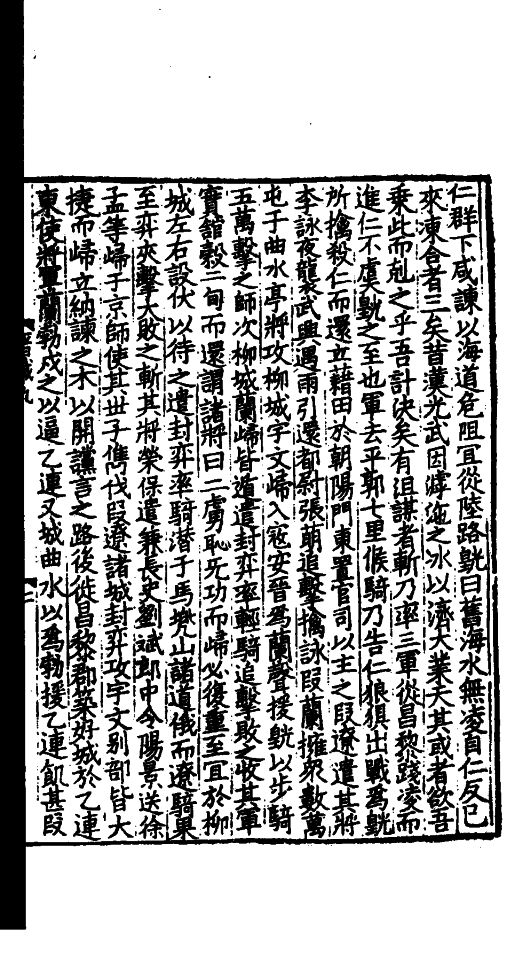 仁群下咸諫以海道危阻宜從陸路皝曰舊海水無凌自仁反已
來凍合者三矣昔漢光武因滹沲之冰以濟大業天其或者欲吾
乘此而剋之乎吾計決矣有沮謀者斬乃率三軍從昌黎踐凌而
進仁不虞皝之至也軍去平郭七里候騎乃告仁狼狽出戰爲皝
所擒殺仁而還立藉田於朝陽門東置官司以主之段遼遣其將
李詠夜襲武興遇雨引還都尉張萌追擊擒詠段蘭擁眾數萬
屯于曲水亭將攻柳城宇文歸入寇安晉爲蘭聲援皝以步騎
五萬擊之師次柳城蘭歸皆遁遣封弈率輕騎追擊敗之收其軍
實館穀二旬而還謂諸將曰二虜恥无功而歸必復重至宜於柳
城左右設伏以待之遣封弈率騎潛于馬兜山諸道俄而遼騎果
至弈夾擊大敗之斬其將榮保遣兼長史劉斌郎中令陽景送徐
孟等歸于京師使其世子儁伐段遼諸城封弈攻宇文別部皆大
捷而歸立納諫之木以開讜言之路後徙昌黎郡築好城於乙連
東使將軍蘭勃戍之以逼乙連又城曲水以爲勃援乙連飢甚段